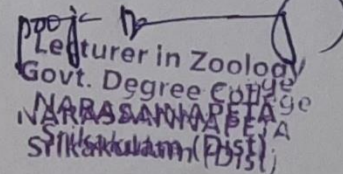 Lecturer in Zoology
Govt. Degree College
NARASANNAPETA
Srikakulam (Dist)